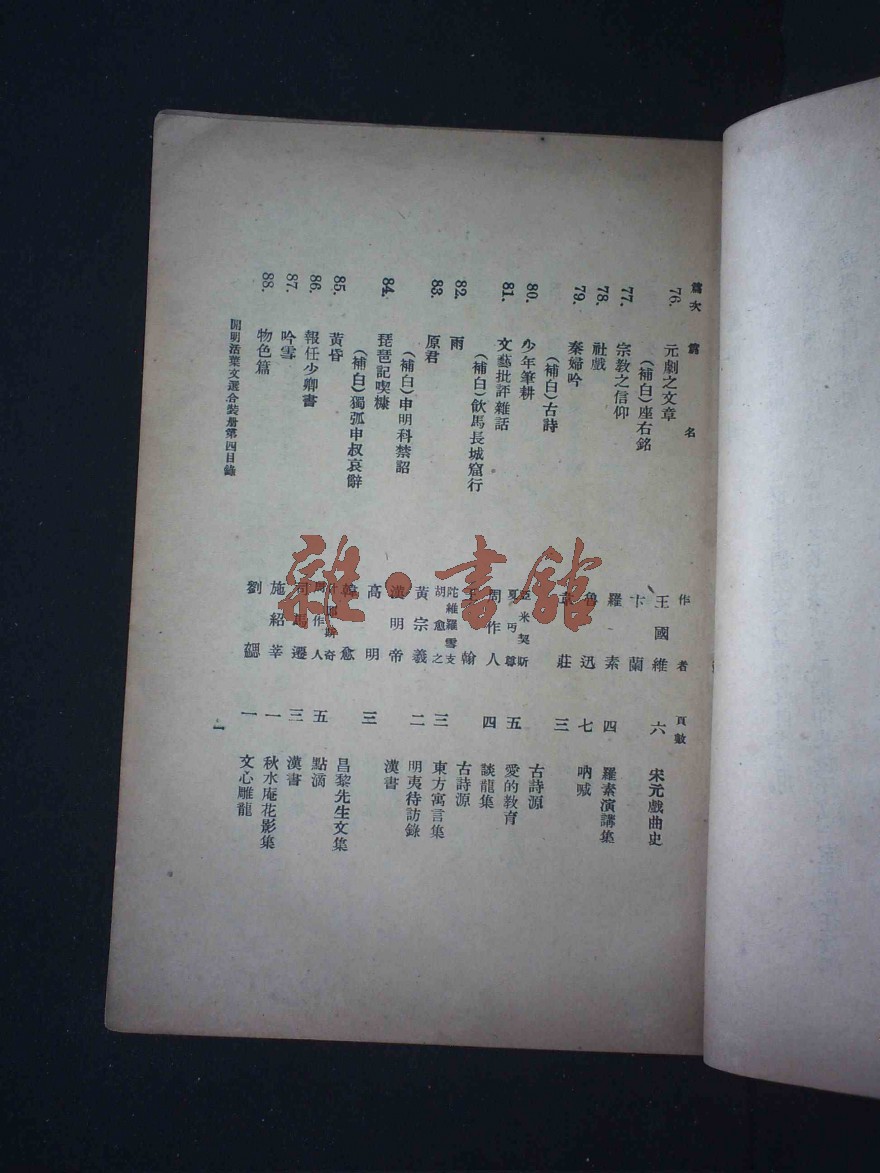 篇次 篇名 作者 頁數
76. 元劇之文章 王國維 六 宋元戲曲史
(補白)座右銘 卞蘭
77. 宗教之信仰 羅素 四 羅素演講集
78. 社戲 魯迅 七 吶喊
79. 秦婦吟 韋莊 三
(補白)古詩 古詩源
80. 少年筆耕 亞米契斯 夏丏尊 五 愛的教育
81. 文藝批評雜話 周作人 四 談龍集
(補白)飲馬長城窟行 翰 古詩源
82. 雨 陀維羅雪支 胡愈之 三 東方寓言集
83. 原君 黃宗羲 二 明夷待訪錄
(補白)申明科禁詔 漢明帝 漢書
84. 琵琶記喫糠 高明 三
(補白)獨孤申叔哀辭 韓愈 昌黎先生文集
85. 黃昏 周作人 五 點滴
86. 報任少卿書 司馬遷 三 漢書
87. 吟雪 施紹莘 一 秋水庵花影集
88. 物色篇 劉勰 一 文心雕龍
開明活葉文選合裝册第四目錄 一
雜·書館